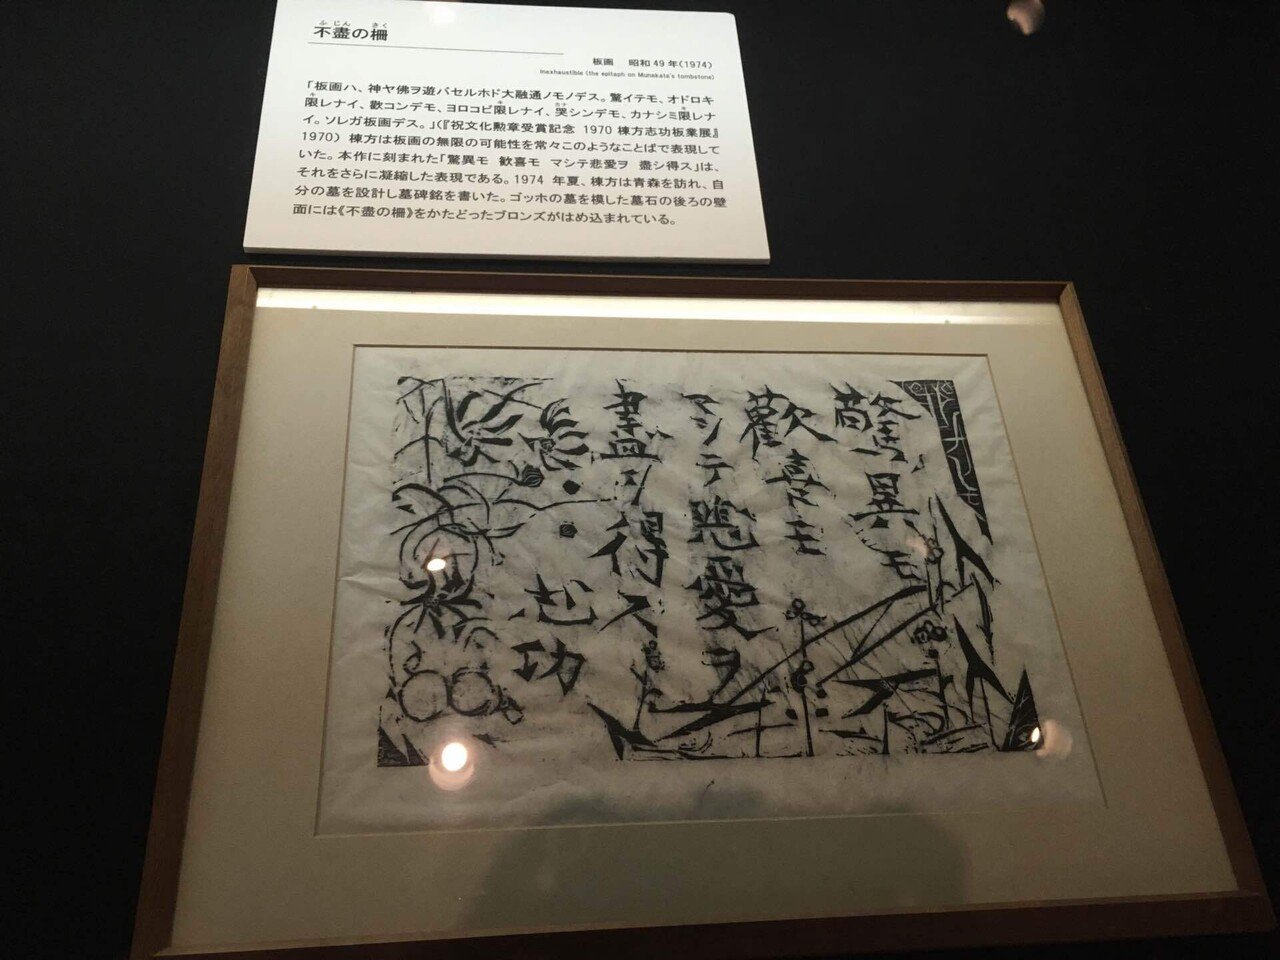 ふじん さく
不盡の柵
板画 昭和49年(1974)
Inexhaustible (the epitaph on Munakata's tombstone)
「板画ハ、神ヤ佛ヲ遊バセルホド大融通ノモノデス。驚イテモ、オドロキ
限レナイ、歡コンデモ、ヨロコビ限レナイ、哭シンデモ、カナシミ限レナ
イ。ソレガ板画デス。」(『祝文化勲章受賞記念 1970 棟方志功板業展』
1970) 棟方は板画の無限の可能性を常々このようなことばで表現して
いた。本作に刻まれた「驚異モ 歓喜モ マシテ悲愛ヲ 盡シ得ス」は、
それをさらに凝縮した表現である。1974 年夏、棟方は青森を訪れ、自
分の墓を設計し墓碑銘を書いた。ゴッホの墓を模した墓石の後ろの壁
面には《不盡の柵》をかたどったブロンズがはめ込まれている。
驚異モ
歡喜モ
マシテ悲愛ヲ
盡シ得ス
志功